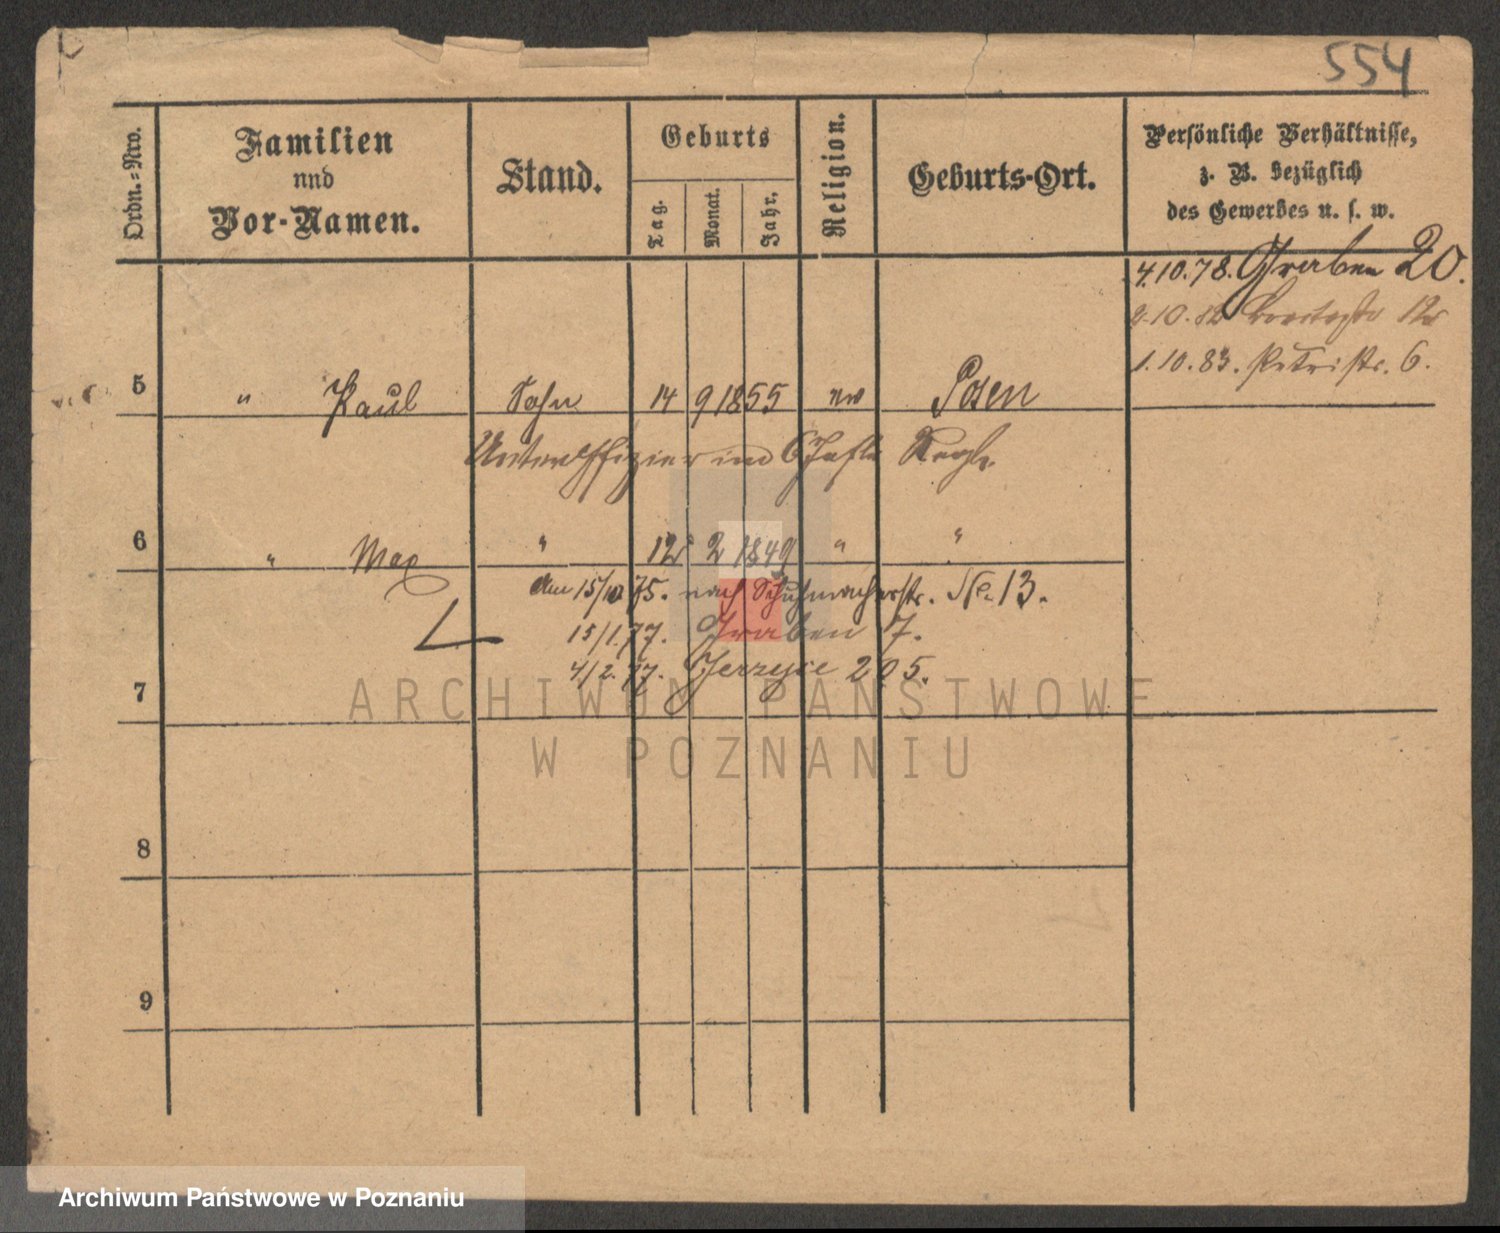 554
Ordn.=Nro.
Familien
und
Vor-Namen.
Stand.
Geburts
Tag.
Monat.
Jahr.
Religion.
Geburts-Ort.
Persönliche Verhältnisse,
z. B. bezüglich
des Gewerbes u. s. w.
4.10.78. Graben 20.
2.10.82
1.10.83. Petristr. 6.
5 " Paul Sohn 14 9 1855 Posen
Unteroffizier im
6 " Max " 12 2 1849 " "
Am 15/10 75. nach Schuhmacherstr. No. 13.
15/1.77. Graben 7.
4/2.77. Jerzyce 205.
7
8
9
ARCHIWUM PAŃSTWOWE
W POZNANIU
Archiwum Państwowe w Poznaniu